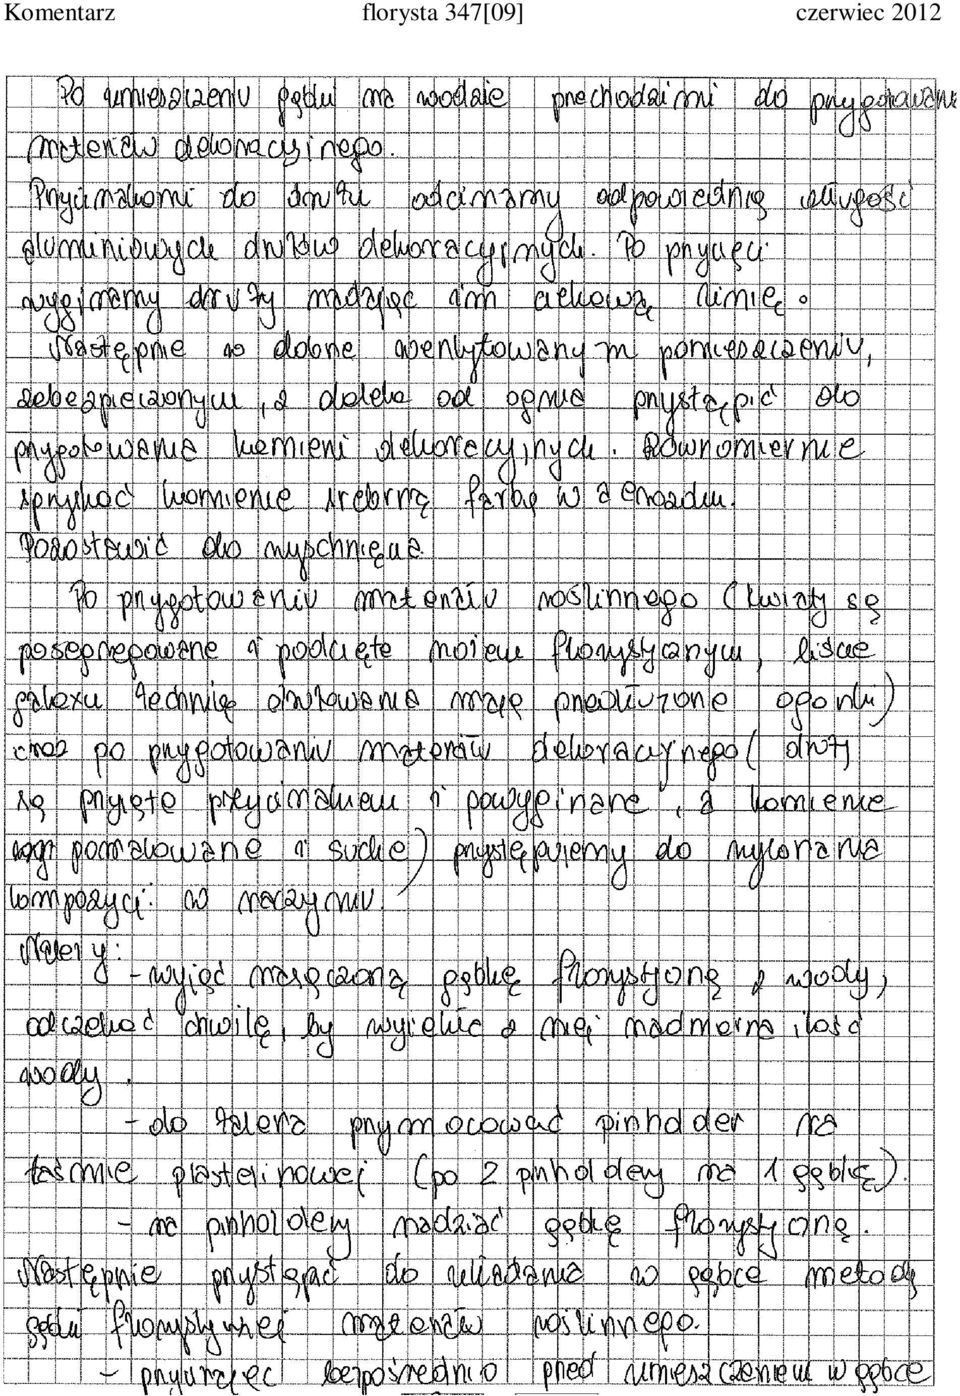 Komentarz florysta 347[09] czerwiec 2012
Po umieszczeniu gąbki na wodzie przechodzimi do przygotowania
materiału dekoracyjnego.
Przycinakami do drutu odcinamy odpowiednią długość
aluminiowych drutów dekoracyjnych. Po przycięci
wyginamy druty nadając im ciekawą linię.
Następnie w dobrze wentylowanym pomieszczeniu,
zabezpieczonym, z daleka od ognia przystąpić do
przygotowania kamieni dekoracyjnych. Równomiernie
spryskać kamienie srebrną farbą w aerozolu.
Pozostawić do wyschnięcia.
Po przygotowaniu materiału roślinnego (kwiaty są
posegregowane i podcięte nożem florystycznym, liście
galexu techniką drutowania mają przedłużone ogonki)
oraz po przygotowaniu materiału dekoracyjnego (druty
są przycięte przycinakiem i powyginane, a kamienie
pomalowane i suche) przystępujemy do wykonania
kompozycji w naczyniu.
Należy:
- wyjąć nasączoną gąbkę florystyczną z wody,
odczekać chwilę, by wyciekła z niej nadmierna ilość
wody.
- do talerza przymocować pinholder na
taśmie plastelinowej (po 2 pinholdery na 1 gąbkę).
- na pinholdery nadziać gąbkę florystyczną.
Następnie przystąpać do układania w gąbce metodą
florystycznej materiału roślinnego.
- bezpośrednio przed umieszczeniem w gąbce